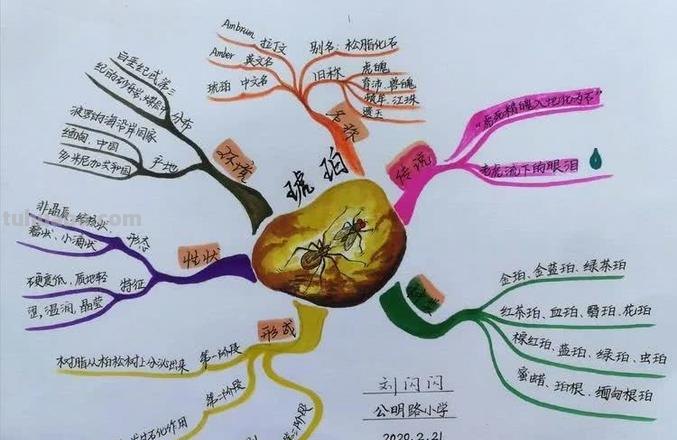 琥珀
名称
Ambrum 拉丁文
Amber 英文名
琥珀 中文名
别名：松脂化石
旧称
虎魄
育沛、兽魄
顿牟、江珠
遗玉
传说
"虎死精魄入地化为石"
老虎流下的眼泪
金珀、金蓝珀、绿茶珀
红茶珀、血珀、翳珀、花珀
棕红珀、蓝珀、绿珀、虫珀
蜜蜡、珀根、缅甸根珀
形成
第一阶段
树脂从柏松树上分泌出来
第二阶段
石化作用
第三阶段
性状
形态
非晶质
瘤状、小滴状
特征
硬度低、质地轻
温润、晶莹
环境
分布
白垩纪或第三
纪的砂砾岩、煤层
产地
波罗的海沿岸国家
缅甸、中国
多米尼加共和国
刘闪闪
公明路小学
2020.2.21